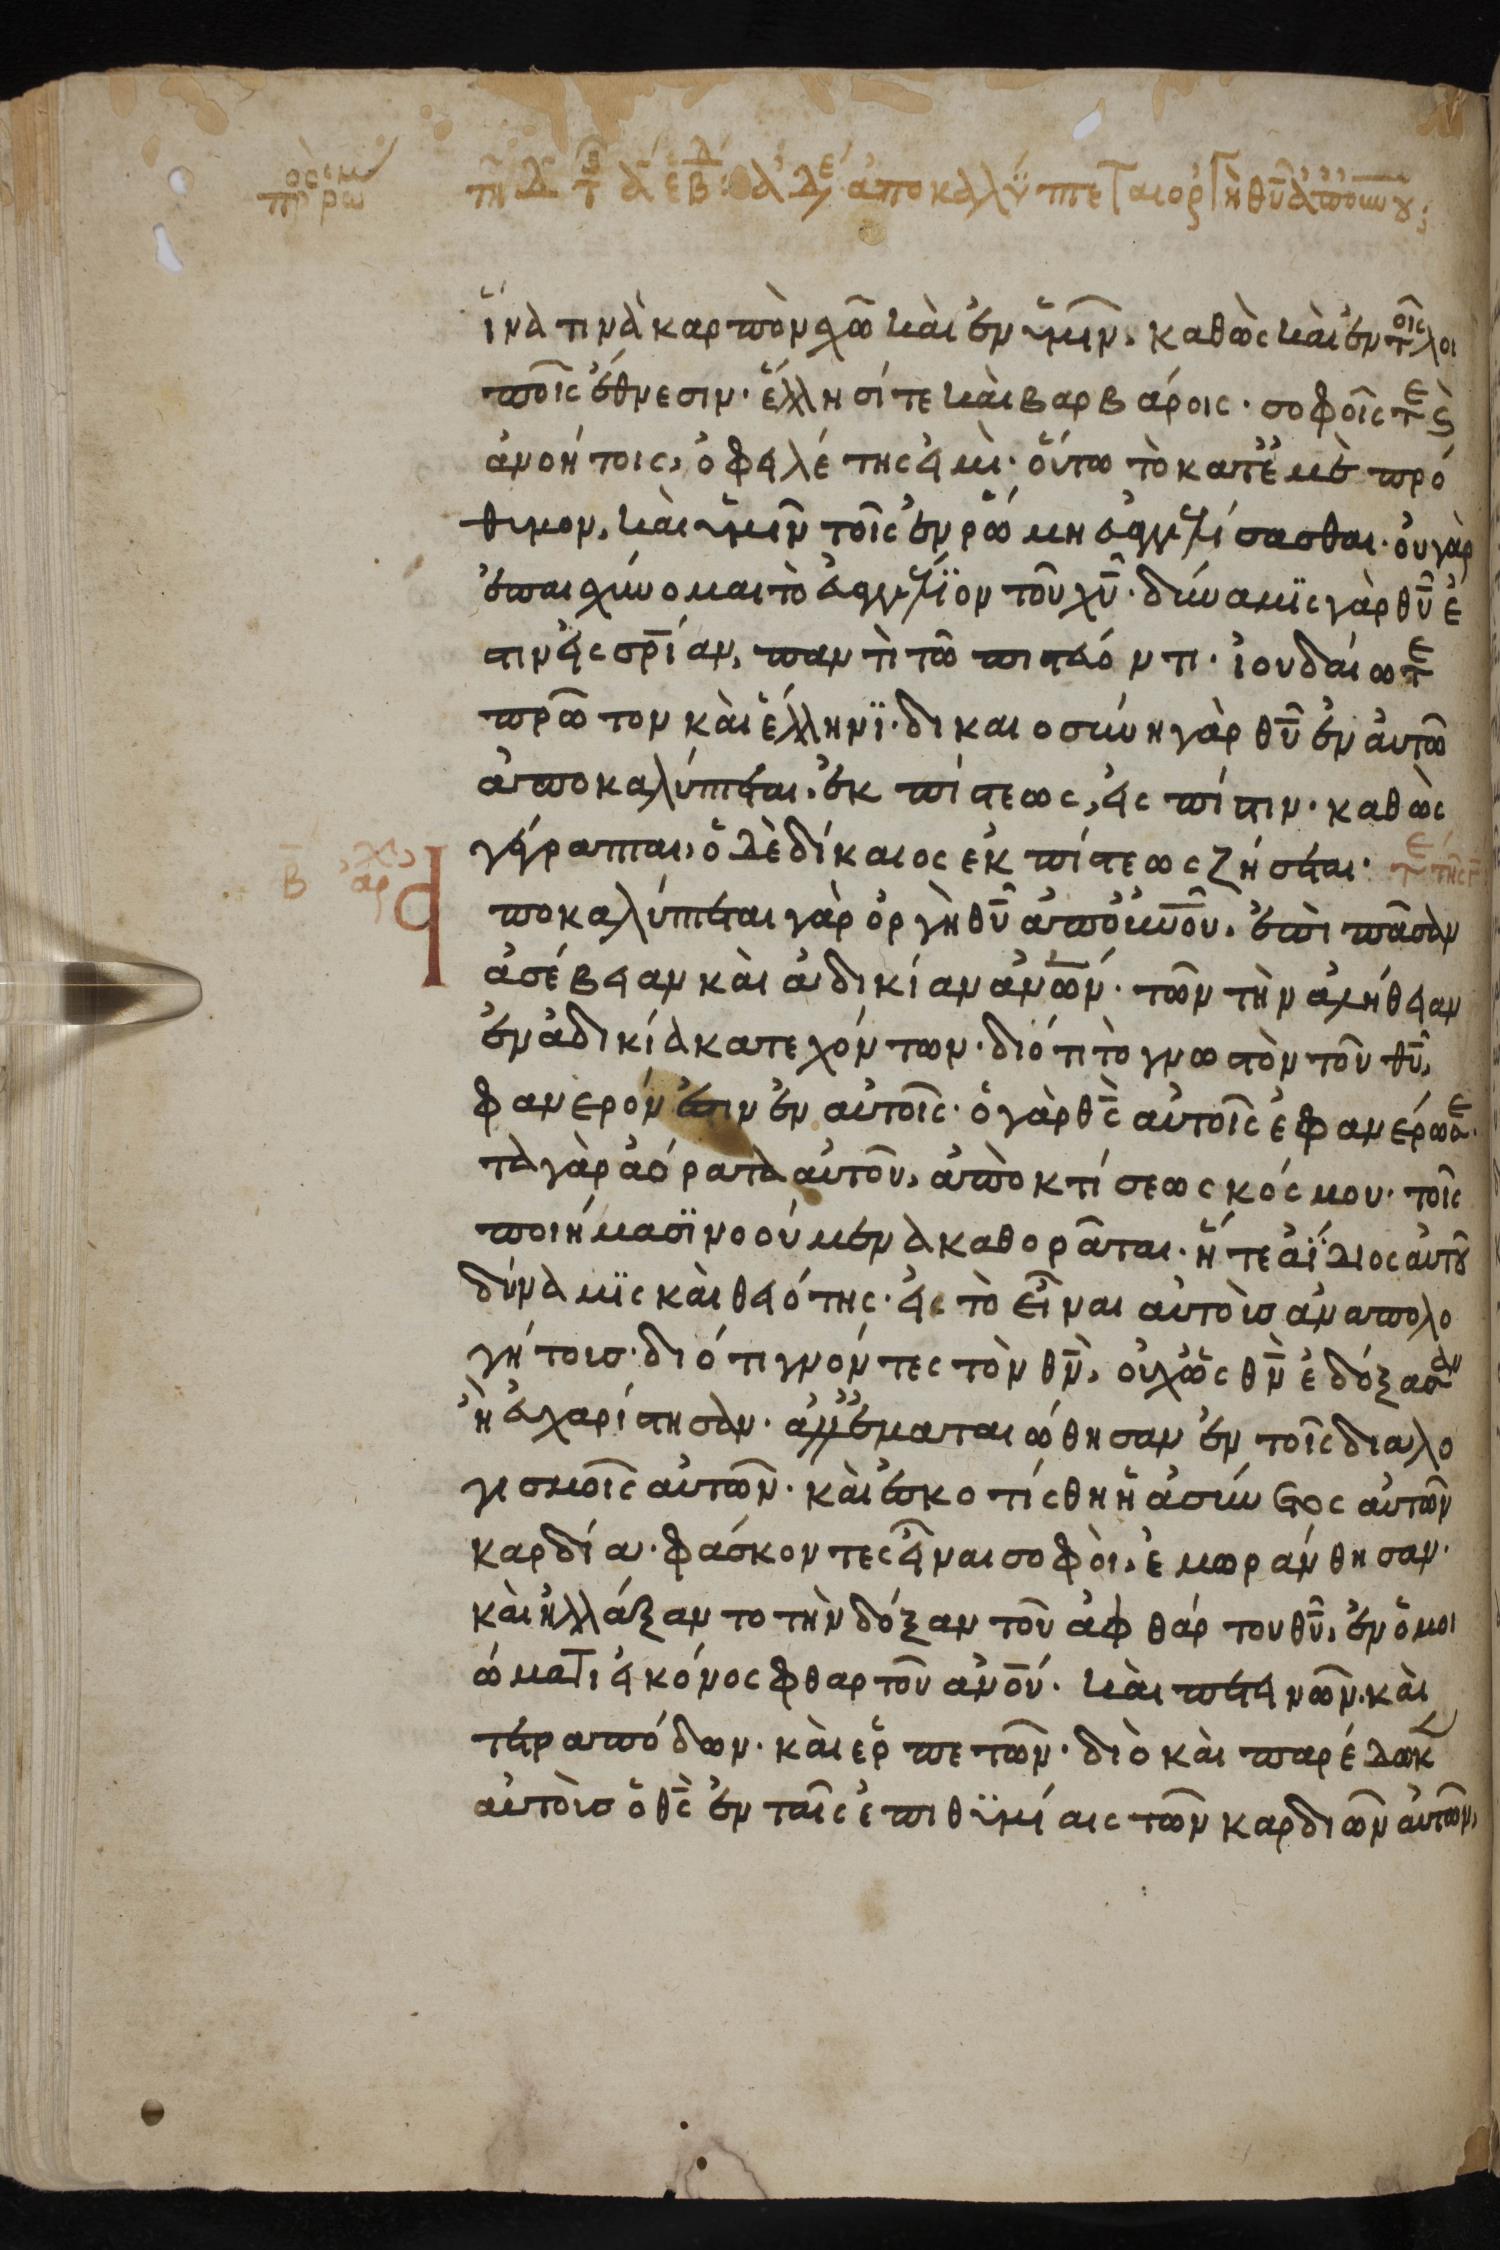 ἵνα τινὰ καρπὸν σχῶ καὶ ἐν ὑμῖν, καθὼς καὶ ἐν τοῖς λοι
ποῖς ἔθνεσιν· ἕλλησί τε καὶ βαρβάροις· σοφοῖς τε ϗ
ἀνοήτοις, ὀφειλέτης εἰμὶ· οὕτω τὸ κατ ἐμὲ πρό
θυμον, καὶ ὑμῖν τοῖς ἐν ῥώμη εὐαγγελίσασθαι· οὐ γὰρ
ἐπαισχύνομαι τὸ εὐαγγέλϊον τοῦ χῦ· δύναμϊς γὰρ θῦ ἐ
στιν εἰς σρίαν, παντὶ τῶ πιστεύοντι· ἰουδαίω τε
πρῶτον καὶ ἕλληνϊ· δικαιοσύνη γὰρ θῦ ἐν αὐτῶ
ἀποκαλύπτεται. ἐκ πίστεως, εἰς πίστιν· καθὼς
γέγραπται, ὁ δὲ δίκαιος ἐκ πίστεως ζήσεται·
ποκαλύπτεται γὰρ ὀργὴ θῦ ἀπ οὐνοῦ. ἐπὶ πᾶσαν
ἀσέβειαν καὶ ἀδικίαν ἀνων· τῶν τὴν ἀλήθειαν
ἐν ἀδικία κατεχόντων· διότι τὸ γνωστὸν τοῦ θῦ,
φανερόν ἐστιν ἐν αὐτοῖς· ὁ γὰρ θς αὐτοῖς ἐφανέρωσε·
τὰ γὰρ ἀόρατα αὐτοῦ, ἀπὸ κτίσεως κόσμου· τοῖς
ποιήμασϊ νοούμενα καθορᾶται· ἥ τε ἀΐδιος αὐτοῦ
δύναμϊς καὶ θειότης· εἰς τὸ εἶναι αὐτοὺσ ἀναπολο
γήτουσ· διότι γνόντες τὸν θν, οὐχ ὡς θν ἐδόξασαν
ἢ εὐχαρίστησαν· ἀλλ ἐματαιώθησαν ἐν τοῖς διαλο
γισμοῖς αὐτῶν· καὶ ἐσκοτίσθη ἡ ἀσύνετος αὐτῶν
καρδία· φάσκοντες εἶναι σοφοὶ, ἐμωράνθησαν·
καὶ ἠλλάξαντο τὴν δόξαν τοῦ ἀφθάρτου θῦ, ἐν ὁμοι
ώματι εἰκόνος φθαρτοῦ ἀνου· καὶ πετεινῶν. καὶ
τετραπόδων· καὶ ἑρπετῶν· διὸ καὶ παρέδωκεν
αὐτοὺσ ὁ θς ἐν ταῖς ἐπιθυμίαις τῶν καρδιῶν αὐτῶν,